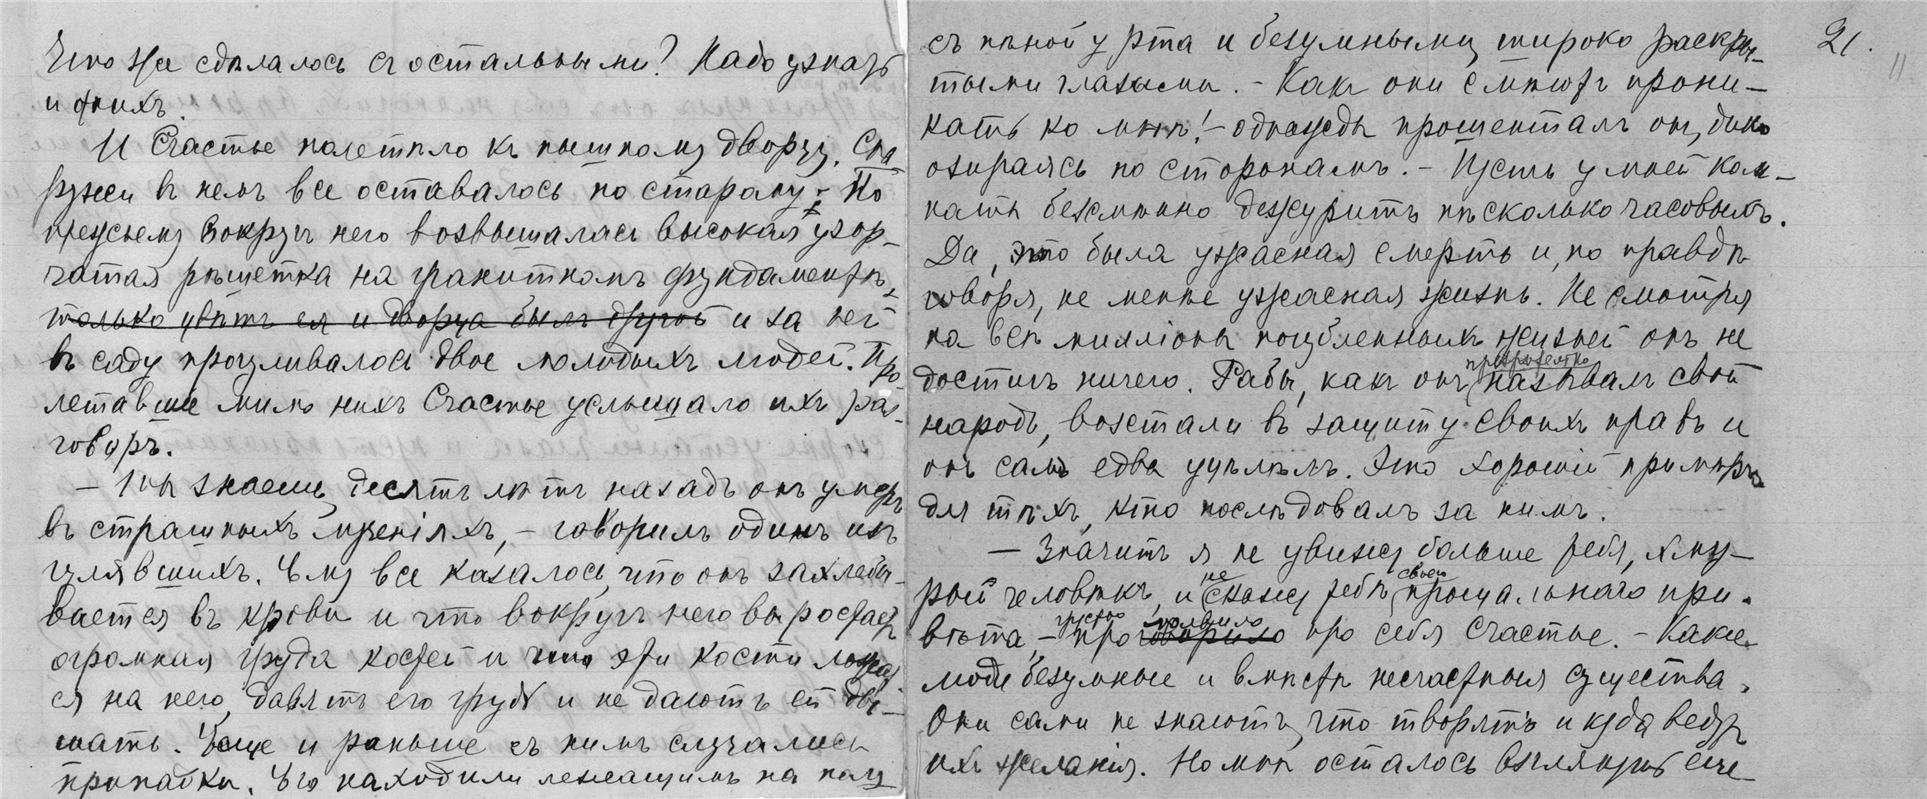 Что же сдѣлалось съ остальными? Надо узнать
и о нихъ.
И Счастье полетѣло къ пышному дворцу. Сна-
ружи въ немъ все оставалось по старому: По
прежнему вокругъ него возвышалась высокая узор-
чатая рѣшетка на гранитномъ фундаментѣ,
только цвѣтъ ея и дворца былъ другой и за ней
въ саду прогуливалось двое молодыхъ людей. Про
летавшее мимо нихъ Счастье услышало ихъ раз-
говоръ.
— Ты знаешь, десять лѣтъ назадъ онъ умеръ
въ страшныхъ мученіяхъ, — говорилъ одинъ изъ
гулявшихъ. Ему все казалось, что онъ захлебы-
вается въ крови и что вокругъ него выростаетъ
огромная груда костей и что эти кости ложат
ся на него, давятъ его грудь и не даютъ ей ды-
шать. Еще и раньше съ нимъ случались
припадки. Его находили лежащимъ на полу
21.
11
съ пѣной у рта и безумными, широко раскры-
тыми глазами. — Какъ они смѣютъ прони-
кать ко мнѣ! — однажды прошепталъ онъ, дико
озираясь по сторонамъ. — Пусть у моей ком-
наты безсмѣнно дежуритъ нѣсколько часовыхъ.
Да, это была ужасная смерть и, по правдѣ
говоря, не менѣе ужасная жизнь. Не смотря
на всѣ милліоны погубленныхъ жизней онъ не
достигъ ничего. Рабы, какъ онъ презрительно называлъ свой
народъ, возстали въ защиту своихъ правъ и
онъ самъ едва уцѣлѣлъ. Это хорошій примѣръ
для тѣхъ, кто послѣдовалъ за нимъ.
— Значитъ я не увижу больше тебя, хму-
рый человѣкъ, и не скажу тебѣ своего прощальнаго при-
вѣта, — грустно проговорило молвило про себя Счастье. — Какіе
люди безумные и вмѣстѣ несчастныя существа.
Они сами не знаютъ, что творятъ и куда ведутъ
ихъ желанія. Но мнѣ осталось взглянуть еще